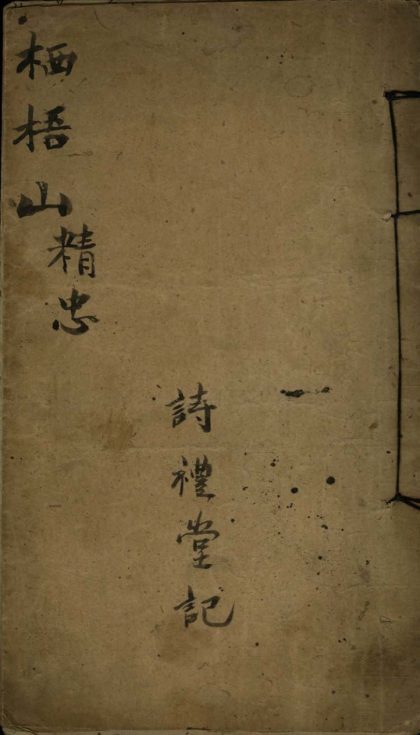 一
詩禮堂記
栖梧山精忠